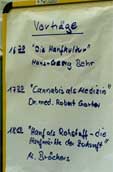 Vorträge
16⁰⁰ "Die Hanfkultur"
Hans-Georg Behr
17³⁰ "Cannabis als Medizin"
Dr. med. Robert Gorter
18⁰⁰ "Hanf als Rohstoff - die
Hanfmühle der Zukunft"
M. Bröckers